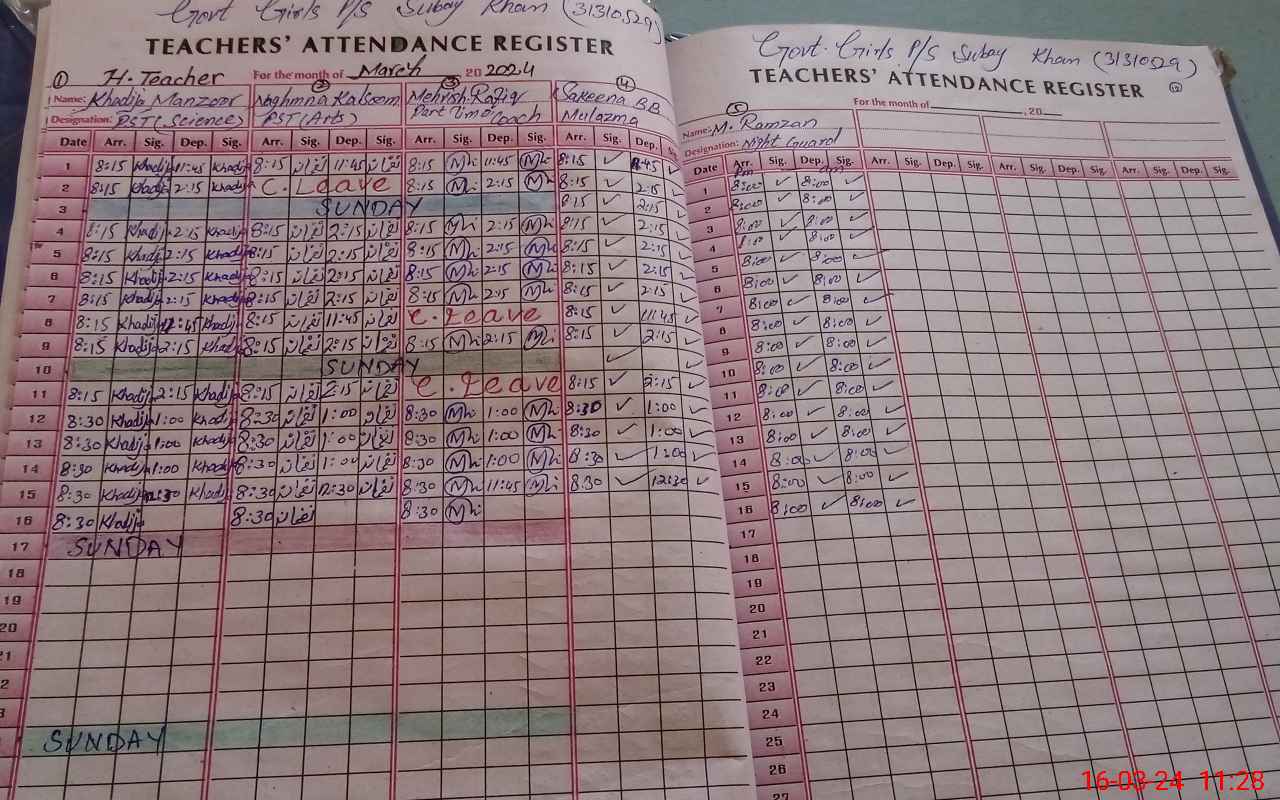 Govt Girls P/S Subay Khan (31310529)
TEACHERS' ATTENDANCE REGISTER
① H. Teacher For the month of March 2024
② ③ ④
Name: Khadija Manzoor Naghmna Kalsoom Mehrish Rafiq Sakeena B.B
Designation: PST (Science) PST (Arts) Part Time Coach Mulazma
Date Arr. Sig. Dep. Sig. Arr. Sig. Dep. Sig. Arr. Sig. Dep. Sig. Arr. Sig. Dep. Sig.
1 8:15 Khadija 11:45 Khadija 8:15 11:45 8:15 11:45 8:15 ✓ 11:45 ✓
2 8:15 Khadija 2:15 Khadija C. Leave 8:15 2:15 8:15 ✓ 2:15 ✓
3 SUNDAY 8:15 ✓ 2:15 ✓
4 8:15 Khadija 2:15 Khadija 8:15 2:15 8:15 2:15 8:15 ✓ 2:15 ✓
5 8:15 Khadija 2:15 Khadija 8:15 2:15 8:15 2:15 8:15 ✓ 2:15 ✓
6 8:15 Khadija 2:15 Khadija 8:15 2:15 8:15 2:15 8:15 ✓ 2:15 ✓
7 8:15 Khadija 2:15 Khadija 8:15 2:15 8:15 2:15 8:15 ✓ 2:15 ✓
8 8:15 Khadija 11:45 Khadija 8:15 11:45 C. Leave 8:15 ✓ 11:45 ✓
9 8:15 Khadija 2:15 Khadija 8:15 2:15 8:15 2:15 8:15 ✓ 2:15 ✓
10 SUNDAY ✓ ✓
11 8:15 Khadija 2:15 Khadija 8:15 2:15 C. Leave 8:15 ✓ 2:15 ✓
12 8:30 Khadija 1:00 Khadija 8:30 1:00 8:30 1:00 8:30 ✓ 1:00 ✓
13 8:30 Khadija 1:00 Khadija 8:30 1:00 8:30 1:00 8:30 ✓ 1:00 ✓
14 8:30 Khadija 1:00 Khadija 8:30 1:00 8:30 1:00 8:30 ✓ 1:00 ✓
15 8:30 Khadija 12:30 Khadija 8:30 12:30 8:30 11:45 8:30 ✓ 12:30 ✓
16 8:30 Khadija 8:30 8:30
17 SUNDAY
18
19
20
SUNDAY
Govt. Girls P/S Subay Khan (31310529)
TEACHERS' ATTENDANCE REGISTER
⑤ For the month of , 20
Name: M. Ramzan
Designation: Night Guard
Date Arr. Sig. Dep. Sig. Arr. Sig. Dep. Sig. Arr. Sig. Dep. Sig. Arr. Sig. Dep. Sig.
Pm am
1 8:00 ✓ 8:00 ✓
2 8:00 ✓ 8:00 ✓
3 8:00 ✓ 8:00 ✓
4 8:00 ✓ 8:00 ✓
5 8:00 ✓ 8:00 ✓
6 8:00 ✓ 8:00 ✓
7 8:00 ✓ 8:00 ✓
8 8:00 ✓ 8:00 ✓
9 8:00 ✓ 8:00 ✓
10 8:00 ✓ 8:00 ✓
11 8:00 ✓ 8:00 ✓
12 8:00 ✓ 8:00 ✓
13 8:00 ✓ 8:00 ✓
14 8:00 ✓ 8:00 ✓
15 8:00 ✓ 8:00 ✓
16 8:00 ✓ 8:00 ✓
17
18
19
20
21
22
23
24
25
26
27
16-03-24 11:28